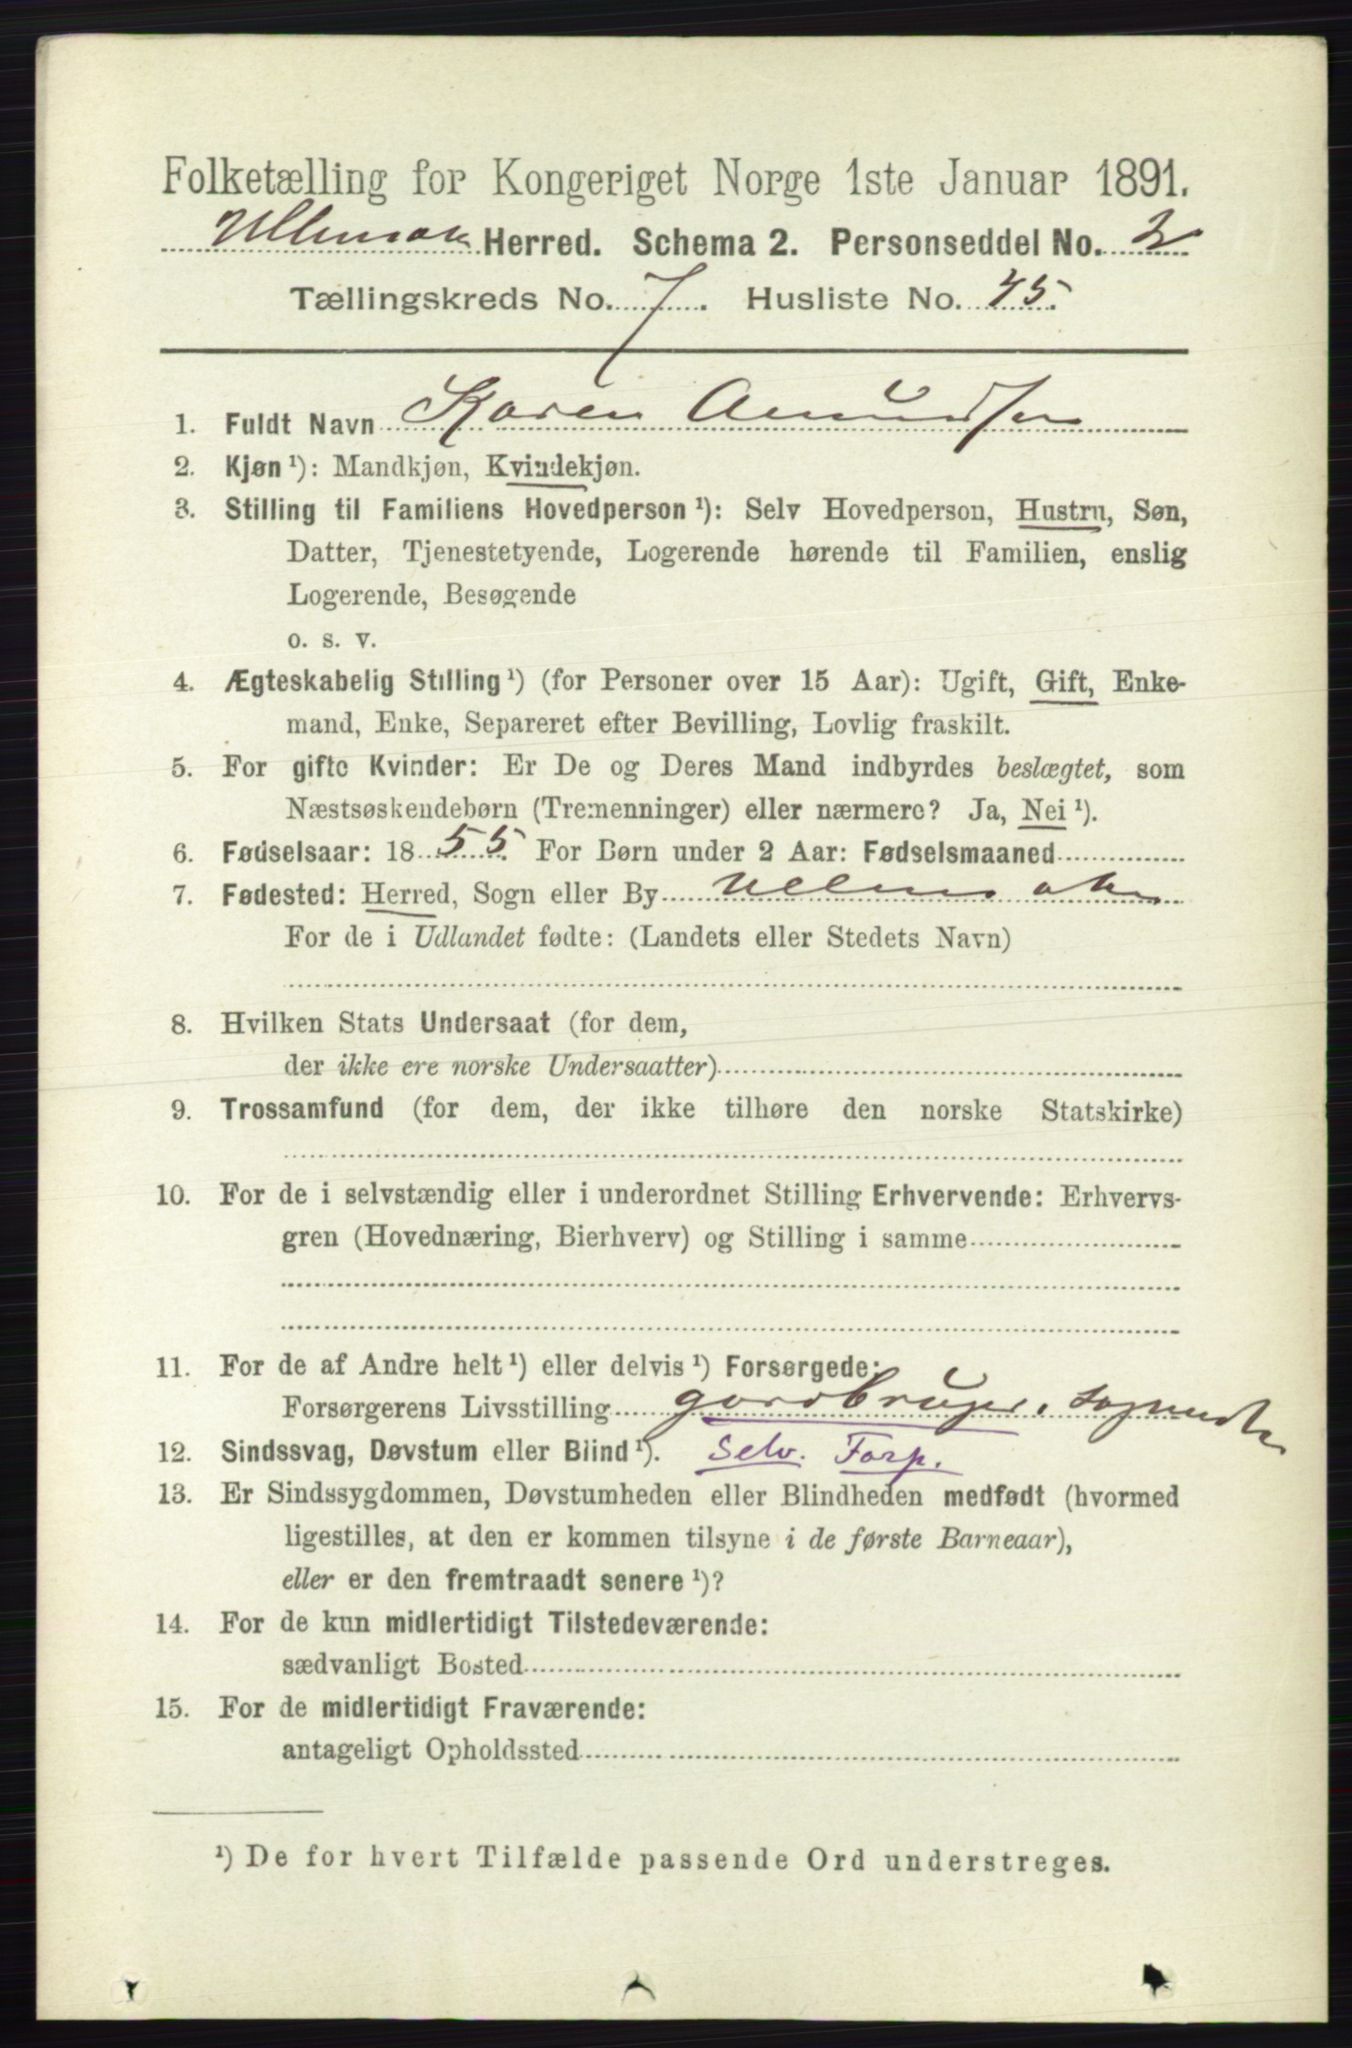 Folketælling for Kongeriget Norge 1ste Januar 1891.
Ullensaker Herred. Schema 2. Personseddel No. 2
Tællingskreds No. 7. Husliste No. 45.
1. Fuldt Navn Karen Amundsen
2. Kjøn¹): Mandkjøn, Kvindekjøn.
3. Stilling til Familiens Hovedperson¹): Selv Hovedperson, Hustru, Søn,
Datter, Tjenestetyende, Logerende hørende til Familien, enslig
Logerende, Besøgende
o. s. v.
4. Ægteskabelig Stilling¹) (for Personer over 15 Aar): Ugift, Gift, Enke-
mand, Enke, Separeret efter Bevilling, Lovlig fraskilt.
5. For gifte Kvinder: Er De og Deres Mand indbyrdes beslægtet, som
Næstsøskendebørn (Tremenninger) eller nærmere? Ja, Nei¹).
6. Fødselsaar: 1855. For Børn under 2 Aar: Fødselsmaaned
7. Fødested: Herred, Sogn eller By Ullensaker
For de i Udlandet fødte: (Landets eller Stedets Navn)
8. Hvilken Stats Undersaat (for dem,
der ikke ere norske Undersaatter)
9. Trossamfund (for dem, der ikke tilhøre den norske Statskirke)
10. For de i selvstændig eller i underordnet Stilling Erhvervende: Erhvervs-
gren (Hovednæring, Bierhverv) og Stilling i samme
11. For de af Andre helt¹) eller delvis¹) Forsørgede:
Forsørgerens Livsstilling gardbruger,
12. Sindssvag, Døvstum eller Blind¹). Selv. Forp.
13. Er Sindssygdommen, Døvstumheden eller Blindheden medfødt (hvormed
ligestilles, at den er kommen tilsyne i de første Barneaar),
eller er den fremtraadt senere¹)?
14. For de kun midlertidigt Tilstedeværende:
sædvanligt Bosted
15. For de midlertidigt Fraværende:
antageligt Opholdssted
¹) De for hvert Tilfælde passende Ord understreges.